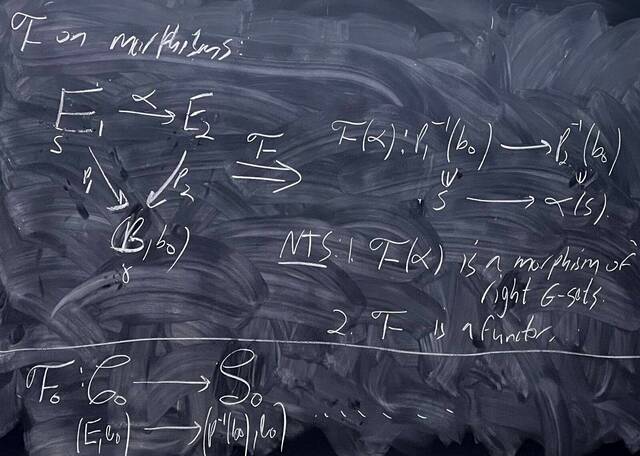 F on morphisms:
E₁ α→ E₂
s
p₁ p₂
(B, b₀)
γ
F ⟹
F(α): p₁⁻¹(b₀) → p₂⁻¹(b₀)
s → α(s).
NTS: 1. F(α) is a morphism of
right G-sets.
2. F is a functor.
F₀: C₀ → S₀
(E, e₀) → (p⁻¹(b₀), e₀)